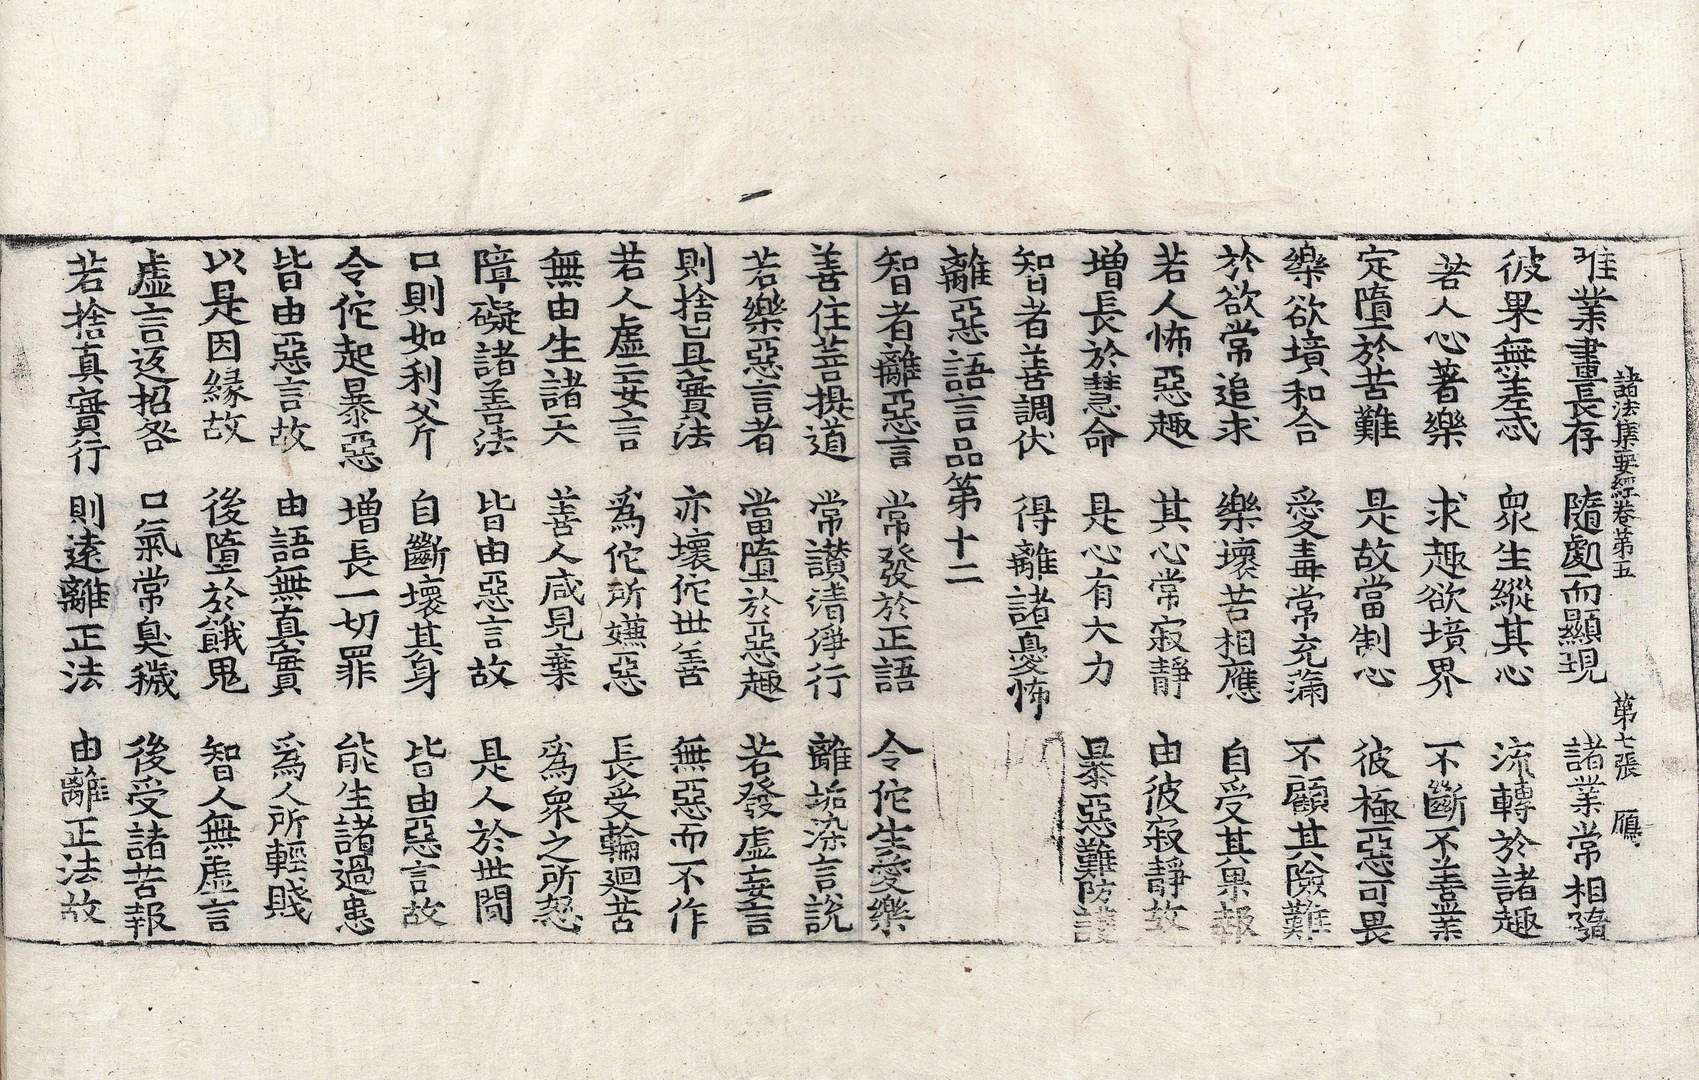 諸法集要經卷第五　第七張　鴈
唯業畫長存　隨處而顯現　諸業常相隨
彼果無差忒　衆生縱其心　流轉於諸趣
若人心著樂　求趣欲境界　不斷不善業
定墮於苦難　是故當制心　彼極惡可畏
樂欲境和合　愛毒常充滿　不顧其險難
於欲常追求　樂壞苦相應　自受其果報
若人怖惡趣　其心常寂靜　由彼寂靜故
增長於慧命　是心有大力　暴惡難防護
智者善調伏　得離諸憂怖
離惡語言品第十二
智者離惡言　常發於正語　令佗生愛樂
善住菩提道　常讃清淨行　離垢染言說
若樂惡言者　當墮於惡趣　若發虛妄言
則捨眞實法　亦壞佗世善　無惡而不作
若人虛妄言　爲佗所嫌惡　長受輪迴苦
無由生諸天　善人咸見棄　爲衆之所怨
障礙諸善法　皆由惡言故　是人於世間
口則如利斧　自斷壞其身　皆由惡言故
令佗起暴惡　增長一切罪　能生諸過患
皆由惡言故　由語無真實　爲人所輕賤
以是因緣故　後墮於餓鬼　智人無虛言
虛言返招咎　口氣常臭穢　後受諸苦報
若捨真實行　則遠離正法　由離正法故